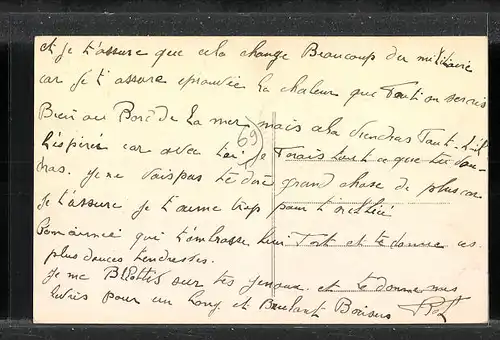 et je t'assure que cela change Beaucoup du militaire
car je t'assure la chaleur que
Bien au Bord de La mer mais cela viendras Tant
l'espérer car avec toi je Ferais tout ce que tu
dras. je ne vais pas te dire grand chose de plus car
je t'assure je t'aime trop pour t'oublier
Ton aimée qui t'embrasse bien Fort et te donne ces
plus douces tendresses.
je me Blottis sur tes genoux et te donne mes
lèvres pour un Long et Brulant Baisers
(69)